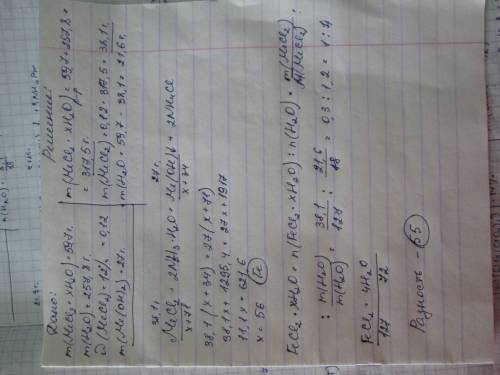 Дано:
m(MeCl₂ · xH₂O) = 59,7 г.
m(H₂O) = 257,8 г
ω(MeCl₂) = 12% = 0,12
m(Me(OH)₂) = 27 г.
Решение:
m(MeCl₂ · xH₂O) р-р = 59,7 + 257,8 =
= 317,5 г.
m(MeCl₂) = 0,12 · 317,5 = 38,1 г.
m(H₂O = 59,7 - 38,1 = 21,6 г.
38,1 27 г.
MeCl₂ + 2NH₃ · H₂O = Me(OH)₂↓ + 2NH₄Cl
x+71 x+34
38,1(x+34) = 27(x+71)
38,1x + 1295,4 = 27x + 1917
11,1x = 621,6
x = 56 Fe
FeCl₂ · xH₂O = n(FeCl₂ · xH₂O) : n(H₂O) = m(MeCl₂) / M(MeCl₂) :
: m(H₂O) / m(H₂O) = 38,1 / 127 : 21,6 / 18 = 0,3 : 1,2 = 1 : 4
FeCl₂ · 4H₂O
127 72
Разность - 55